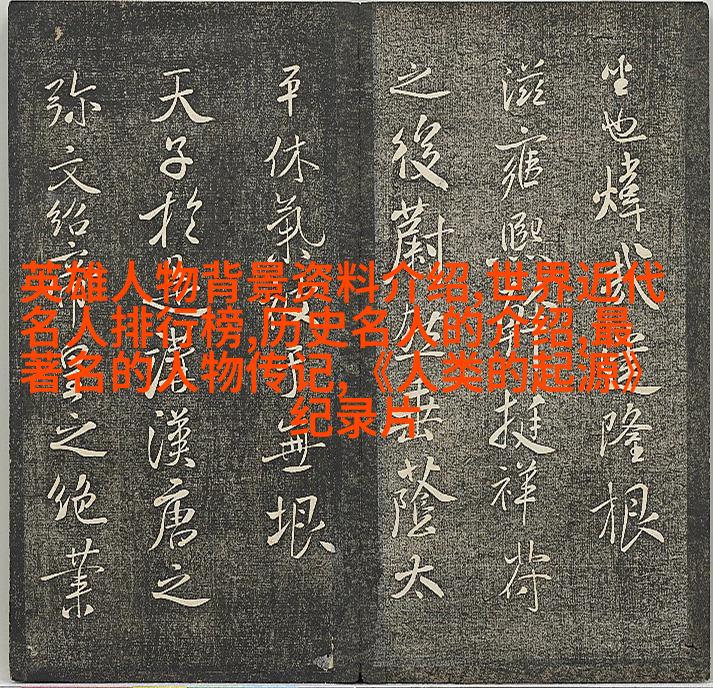 英雄人物背景资料介绍,世界近代
名人排行榜,历史名人的介绍,最
著名的人物传记,《人类的起源》
纪录片
也煒哉隆根
滋雍熙挺祥符
之後蔚垂蔭太
平休氣于無垠
天子於是漢唐之
弥文紹帝皇之絶業